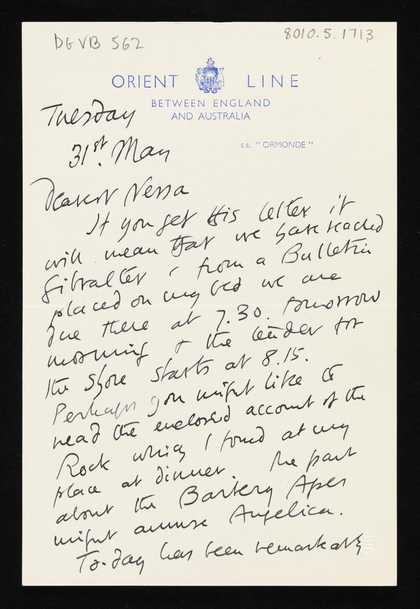 DGVB 562
8010.5.1713
ORIENT LINE
BETWEEN ENGLAND
AND AUSTRALIA
s.s. "ORMONDE"
Tuesday
31st. May
Dearest Nessa
If you get this letter it
will mean that we have reached
Gibralter & from a Bulletin
placed on my bed we are
due there at 7.30. tomorrow
morning & the tender for
the shore starts at 8.15.
Perhaps you might like to
read the enclosed account of the
Rock which I found at my
place at dinner The part
about the Barbery Apes
might amuse Angelica.
To-day has been remarkably